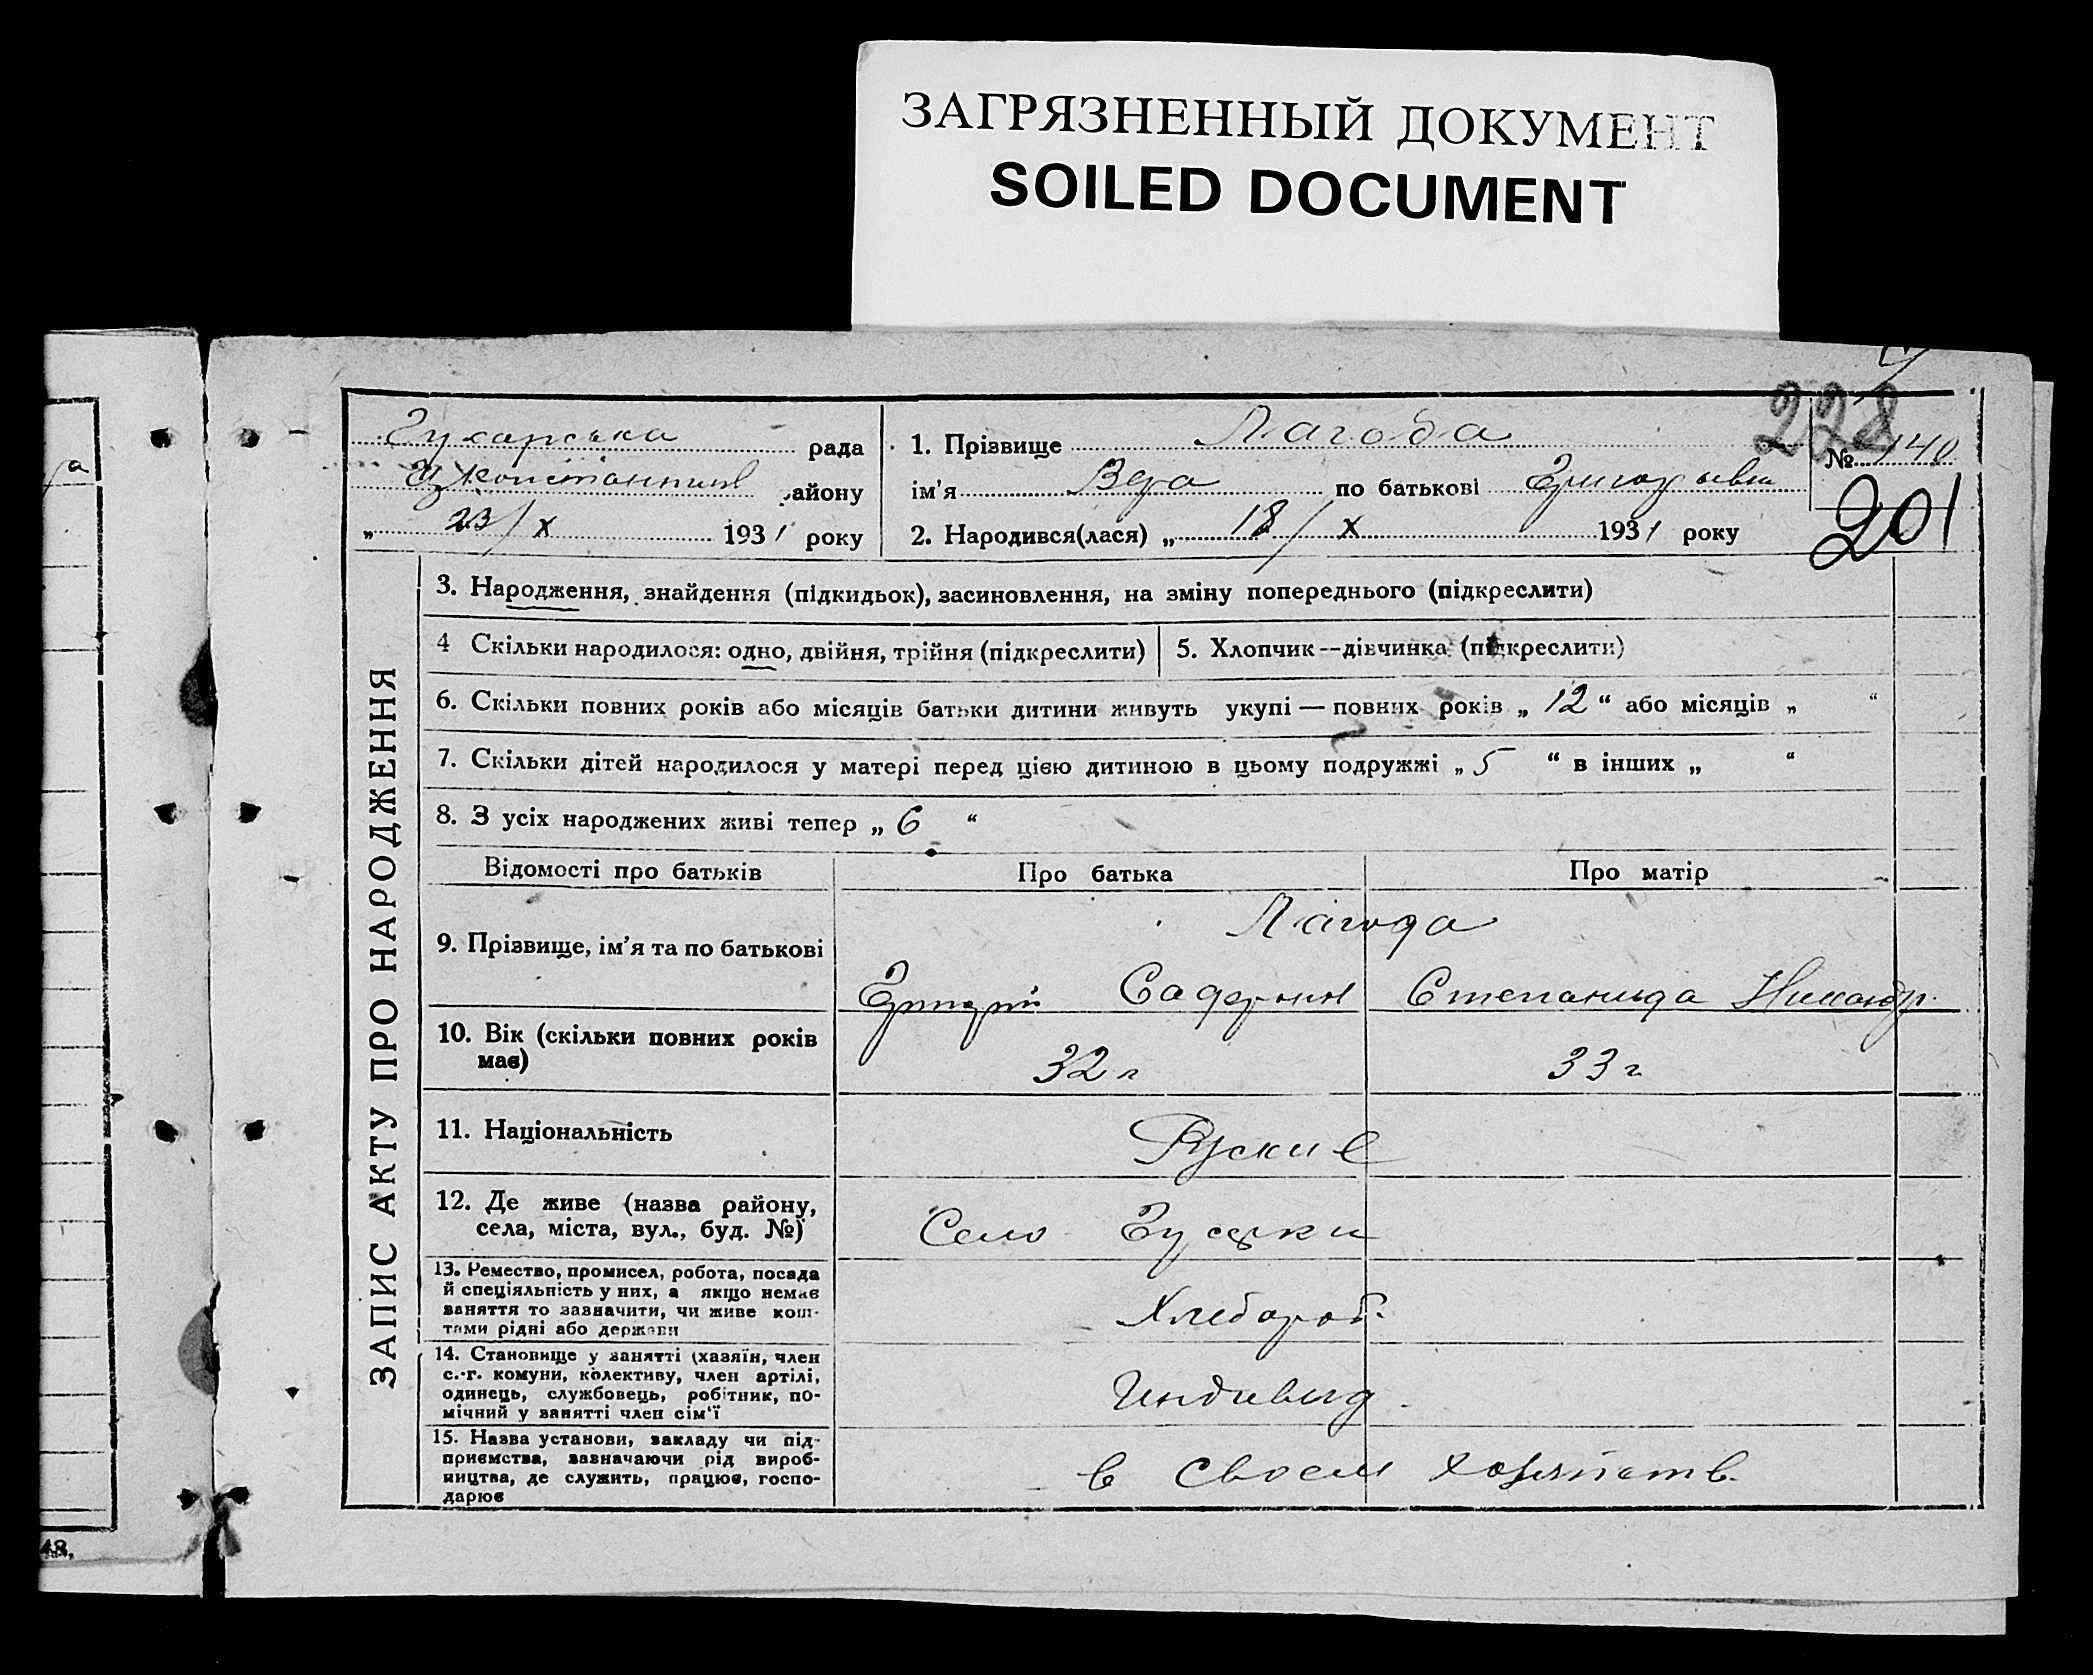 ЗАГРЯЗНЕННЫЙ ДОКУМЕНТ
SOILED DOCUMENT
228
рада
айону
„ 23/X 1931 року
1. Прізвище Лагода
ім'я Вера по батькові
2. Народився(лася) „ 18/X 1931 року
№ 140
201
ЗАПИС АКТУ ПРО НАРОДЖЕННЯ
3. Народження, знайдення (підкидьок), засиновлення, на зміну попереднього (підкреслити)
4 Скільки народилося: одно, двійня, трійня (підкреслити)
5. Хлопчик--дівчинка (підкреслити)
6. Скільки повних років або місяців батьки дитини живуть укупі — повних років „ 12 “ або місяців „ “
7. Скільки дітей народилося у матері перед цією дитиною в цьому подружжі „ 5 “ в інших „ “
8. З усіх народжених живі тепер „ 6 “
Відомості про батьків Про батька Про матір
9. Прізвище, ім'я та по батькові
Лагода
Степанида Никандр.
10. Вік (скільки повних років
має)
32 л 33 г
11. Національність
Руские
12. Де живе (назва району,
села, міста, вул., буд. №)
Село Гусарки
13. Ремество, промисел, робота, посада
й спеціяльність у них, а якщо немає
заняття то зазначити, чи живе кош-
тами рідні або держави
Хлебороб.
14. Становище у занятті (хазяїн, член
с.-г. комуни, колективу, член артілі,
одинець, службовець, робітник, по-
мічний у занятті член сім'ї
Индивид.
15. Назва установи, закладу чи під-
приємства, зазначаючи рід вироб-
ництва, де служить, працює, госпо-
дарює
в своем хозяйств.
48,